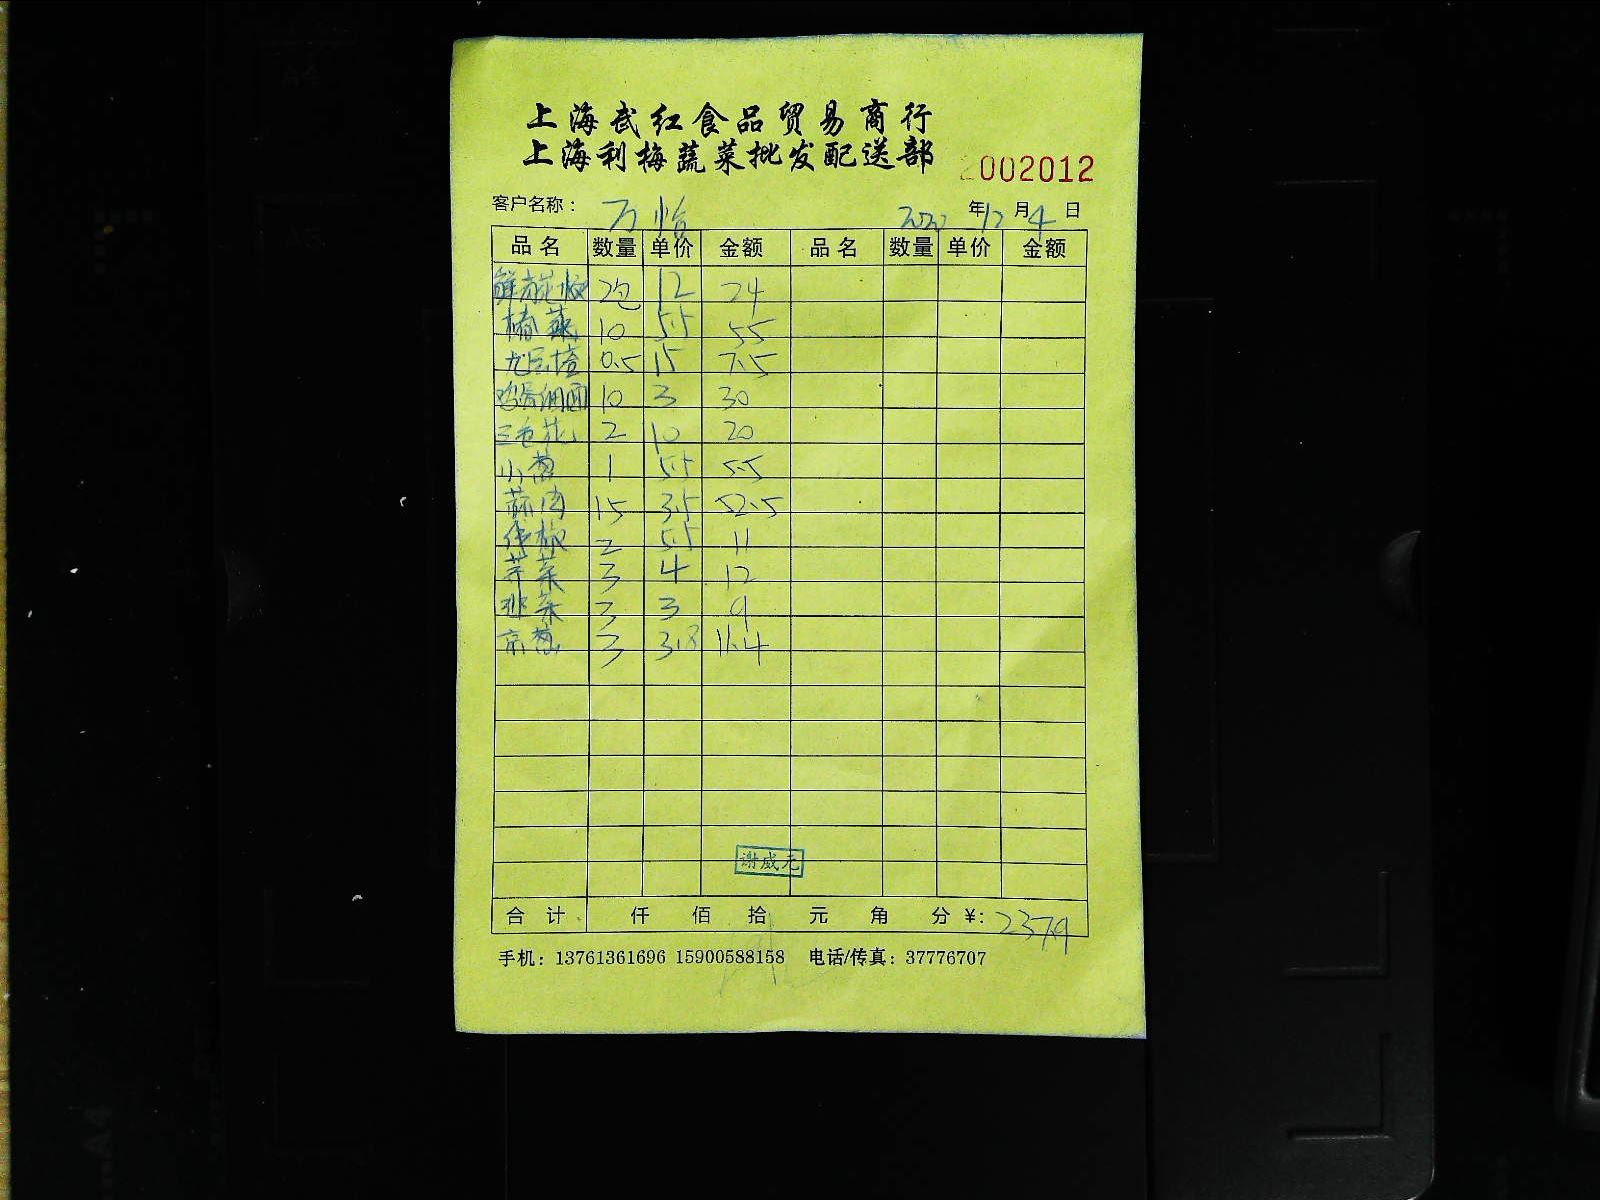 上海武红食品贸易商行
上海利梅蔬菜批发配送部
2002012
客户名称： 万怡 2020年12月4日
品名 数量 单价 金额 品名 数量 单价 金额
12 24
10 5.5 55
0.5 15 7.5
鸡蛋细面 10 3 30
三色花 2 10 20
小葱 1 5.5 5.5
蒜肉 15 3.5 52.5
2 5.5 11
芹菜 3 4 12
韭菜 3 3 9
京葱 3 3.8 11.4
谢威元
合计 仟 佰 拾 元 角 分 ¥: 237.9
手机： 13761361696 15900588158 电话/传真： 37776707